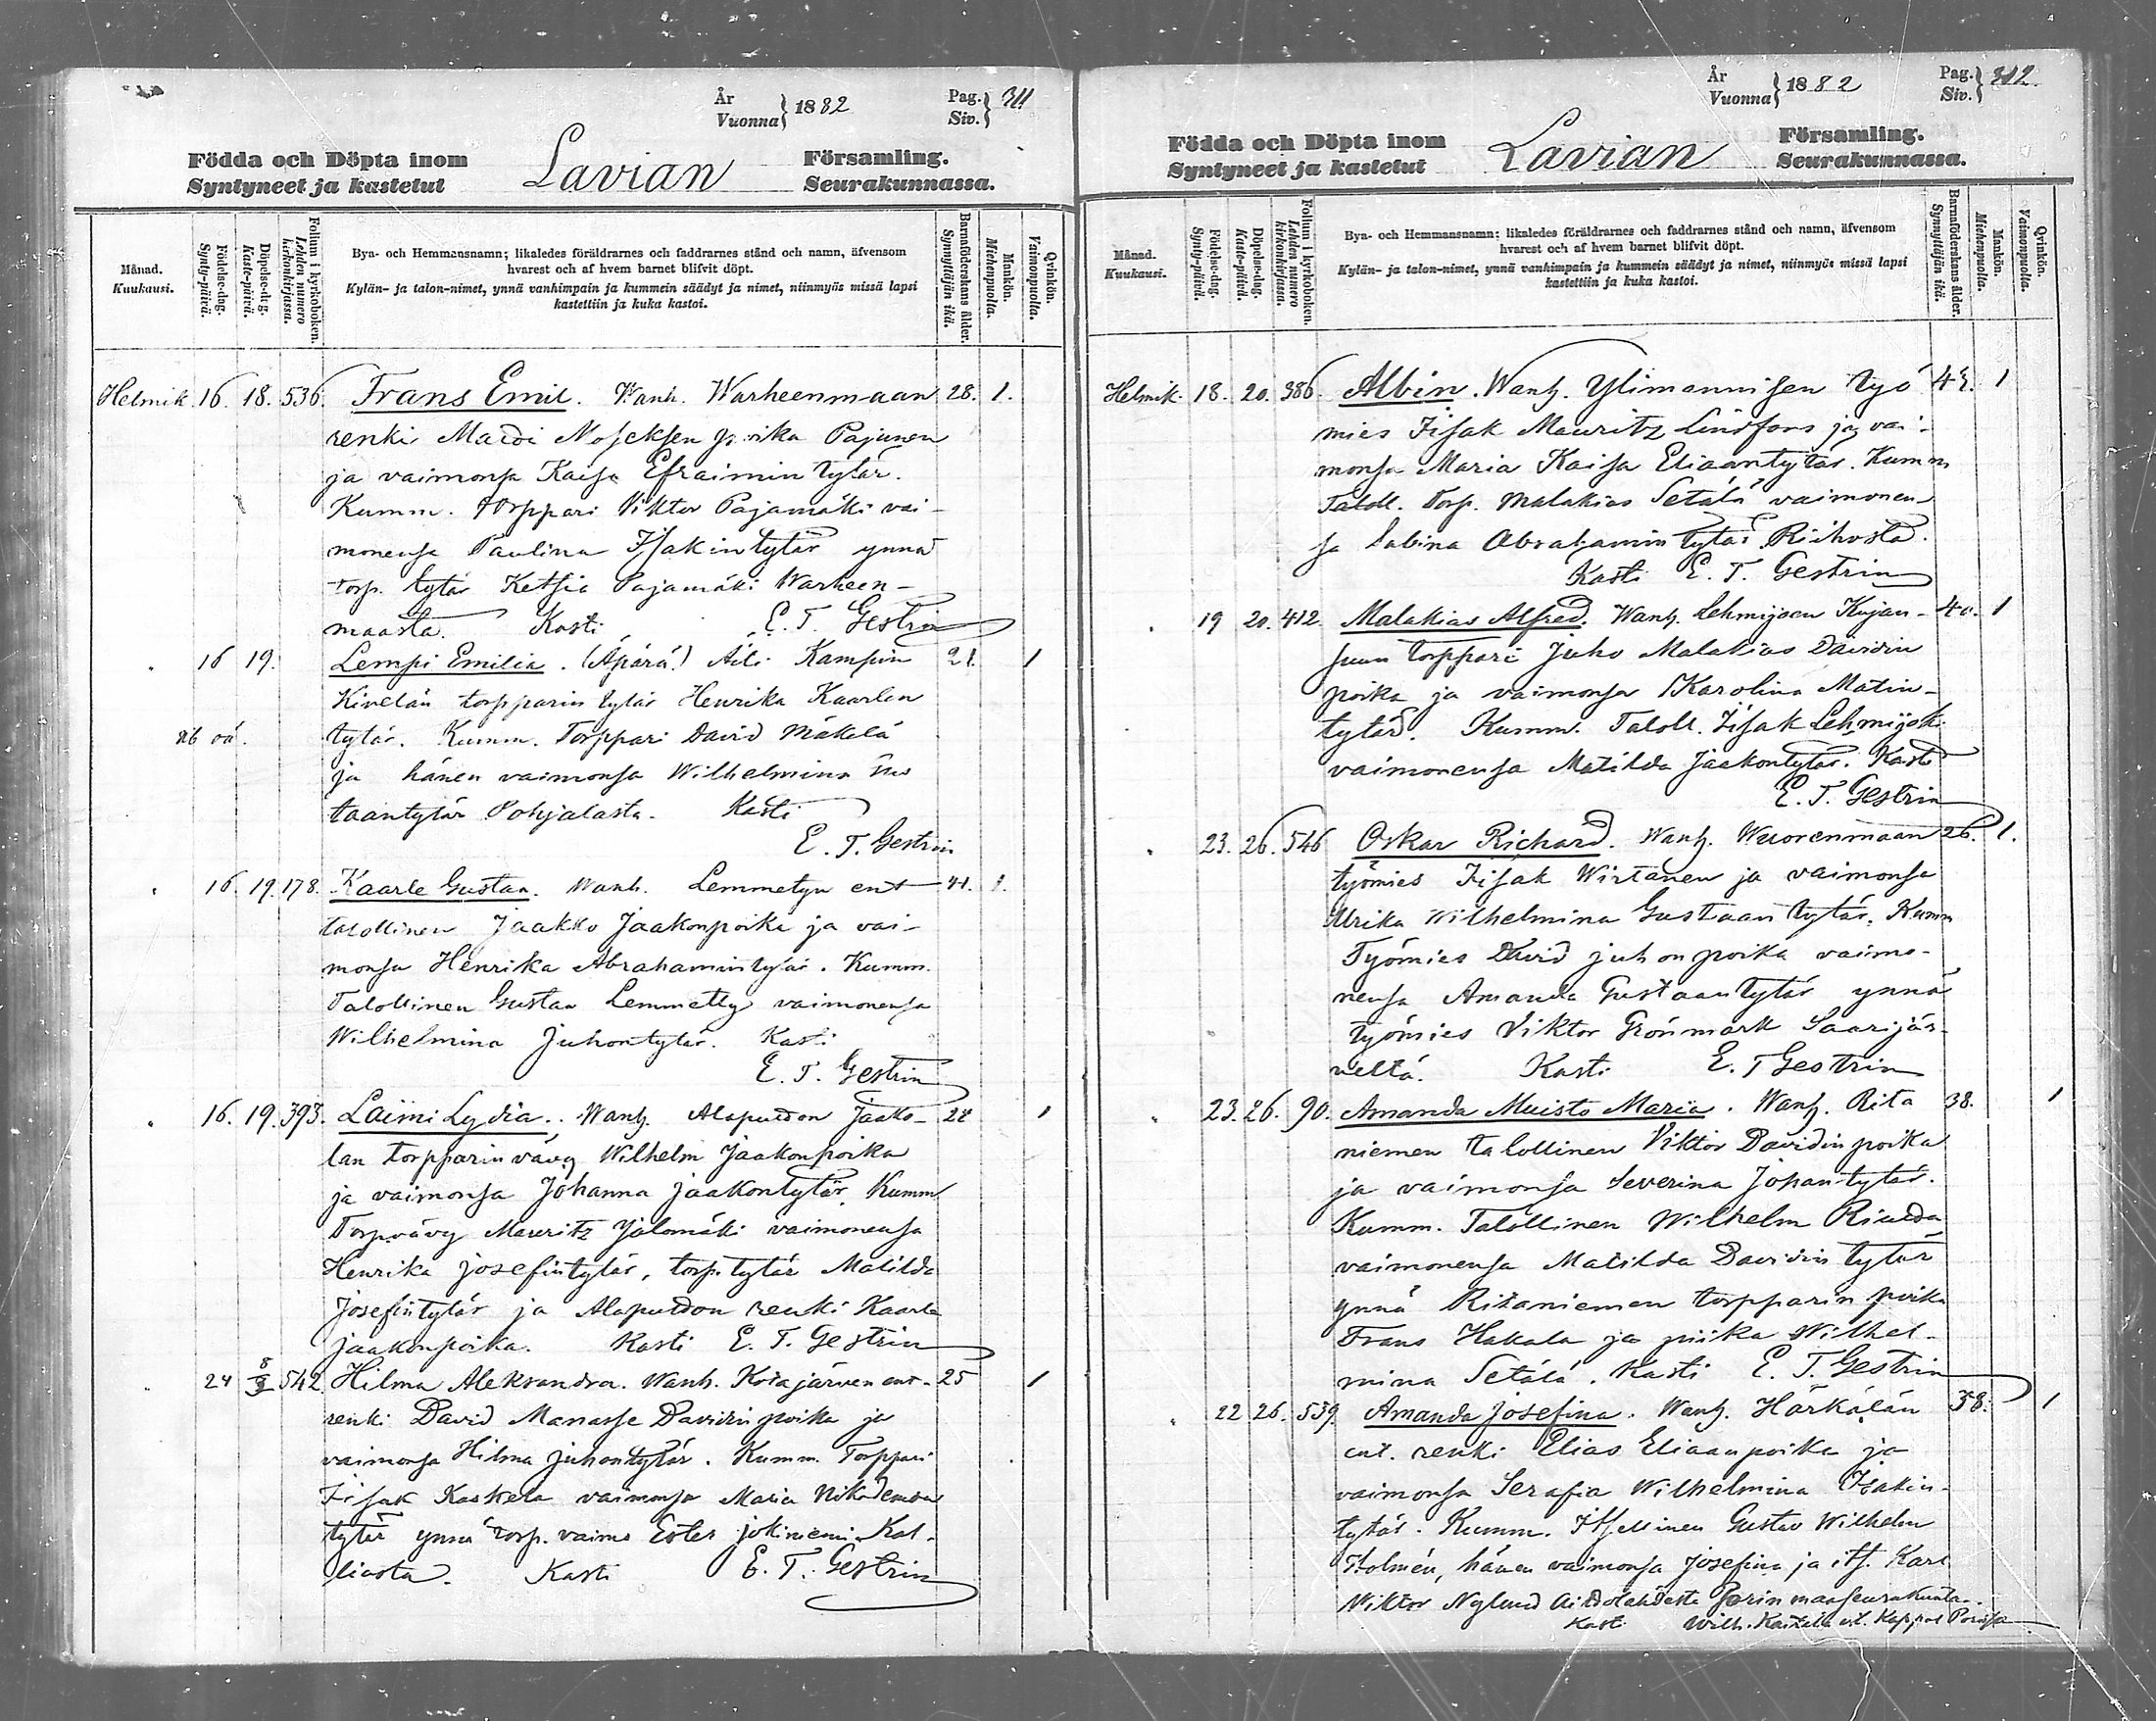 År
Vuonna } 1882
Pag.
Siv. } 311
Födda och Döpta inom
Syntyneet ja kastetut
Lavian
Församling.
Seurakunnassa.
Månad.
Kuukausi.
Födelse-dag.
Synty-päivä.
Döpelse-dag.
Kaste-päivä.
Folium i kyrkoboken.
Lehden numero kirkonkirjassa.
Bya- och Hemmansnamn; likaledes föräldrarnes och faddrarnes stånd och namn, äfvensom
hvarest och af hvem barnet blifvit döpt.
Kylän- ja talon-nimet, ynnä vanhimpain ja kummein säädyt ja nimet, niinmyös missä lapsi
kastettiin ja kuka kastoi.
Barnaföderskans ålder.
Synnyttäjän ikä.
Mankön.
Miehenpuolia.
Qvinkön.
Vaimonpuolia.
Helmik. 16. 18. 536. Frans Emil. Wanh. Warheenmaan 28. 1.
renki Poika Pajunen
ja vaimonsa Kaisa Efraimin tytär.
Kumm. torppari Viktor Pajamäki vai-
monensa Paulina Isakintytär ynnä
torp. tytär Ketsia Pajamäki Warheen-
maasta. Kasti E. T. Gestrin
" 16 19. Lempi Emilia. (Äpärä.) Äiti Kampin 21. 1
Kivelän torpparin tytär Henrika Kaarlen
tytär. Kumm. Torppari David Mäkelä
ja hänen vaimonsa Wilhelmina
taantytär Pohjalasta. Kasti
E. T. Gestrin
" 16 19. 178. Kaarle Gustaa. Wanh. Lemmetyn ent 41. 1.
talollinen Jaakko Jaakonpoika ja vai-
monsa Henrika Abrahamintytär. Kumm.
Talollinen Gustaa Lemmetty vaimonensa
Wilhelmina Juhontytär. Kasti
E. T. Gestrin
" 16. 19. 393. Laimi Lydia. Wanh. Alaputdon Jaako- 28 1
lan torpparin vävy Wilhelm Jaakonpoika
ja vaimonsa Johanna Jaakontytär. Kumm.
Torp. vävy Mauritz Jalomäki vaimonensa
Henrika Josefintytär, torp. tytär Matilda
Josefintytär ja Alaputdon renki Kaarle
Jaakonpoika. Kasti E. T. Gestrin
" 24 8/3 542 Hilma Aleksandra. Wanh. Kotajärven ent. 25 1
renki David Manasse Davidin poika ja
vaimonsa Hilma Juhontytär. Kumm. Torppari
Iisak Kaskela vaimonsa Maria
tytär ynnä torp. vaimo Ester Jokiniemi Kal-
liosta. Kasti E. T. Gestrin
År
Vuonna } 1882
Pag.
Siv. } 312.
Födda och Döpta inom
Syntyneet ja kastetut
Lavian
Församling.
Seurakunnassa.
Månad.
Kuukausi.
Födelse-dag.
Synty-päivä.
Döpelse-dag.
Kaste-päivä.
Folium i kyrkoboken.
Lehden numero kirkonkirjassa.
Bya- och Hemmansnamn; likaledes föräldrarnes och faddrarnes stånd och namn, äfvensom
hvarest och af hvem barnet blifvit döpt.
Kylän- ja talon-nimet, ynnä vanhimpain ja kummein säädyt ja nimet, niinmyös missä lapsi
kastettiin ja kuka kastoi.
Barnaföderskans ålder.
Synnyttäjän ikä.
Mankön.
Miehenpuolia.
Qvinkön.
Vaimonpuolia.
Helmik. 18. 20. 386. Albin. Wanh. Ylimannisen työ 1
mies Iisak Mauritz Lindfors ja vai-
monsa Maria Kaisa Eliaantytär. Kumm
Taloll. Torp. Malakias Setälä vaimonen-
sa Sabina Abrahamin tytär Riihosta.
Kasti E. T. Gestrin
" 19 20. 412. Malakias Alfred. Wanh. Lehmijoen Kujan- 40. 1
suun torppari Juho Malakias Davidin
poika ja vaimonsa Karolina Matin-
tytär. Kumm. Taloll. Iisak Lehmijoki
vaimonensa Matilda Jaakontytär. Kasti
E. T. Gestrin
" 23. 26. 546 Oskar Richard. Wanh. Wuorenmaan 26. 1.
työmies Iisak Wirtanen ja vaimonsa
Ulrika Wilhelmina Gustaan tytär. Kumm
Työmies David Juhonpoika vaimo-
nensa Amanda Gustaantytär ynnä
työmies Viktor Grönmark Saarijär-
veltä. Kasti E. T Gestrin
" 23. 26. 90. Amanda Muisto Maria. Wanh. Rita 38. 1
niemen talollinen Viktor Davidin poika
ja vaimonsa Severina Johantytär.
Kumm. Talollinen Wilhelm
vaimonensa Matilda Davidin tytär
ynnä Ritaniemen torpparin poika
Frans Hakala ja piika Wilhel-
mina Setälä. Kasti E. T. Gestrin
" 22 26. 539. Amanda Josefina. Wanh. Härkälän 38. 1
ent. renki Elias Eliaanpoika ja
vaimonsa Serafia Wilhelmina Isakin-
tytär. Kumm. Itsellinen Gustav Wilhelm
Holmén, hänen vaimonsa Josefina ja its. Karl
Wiktor Nylund Porin maaseurakunta.
Kasti Wilh. v.t. Kappal. Porissa